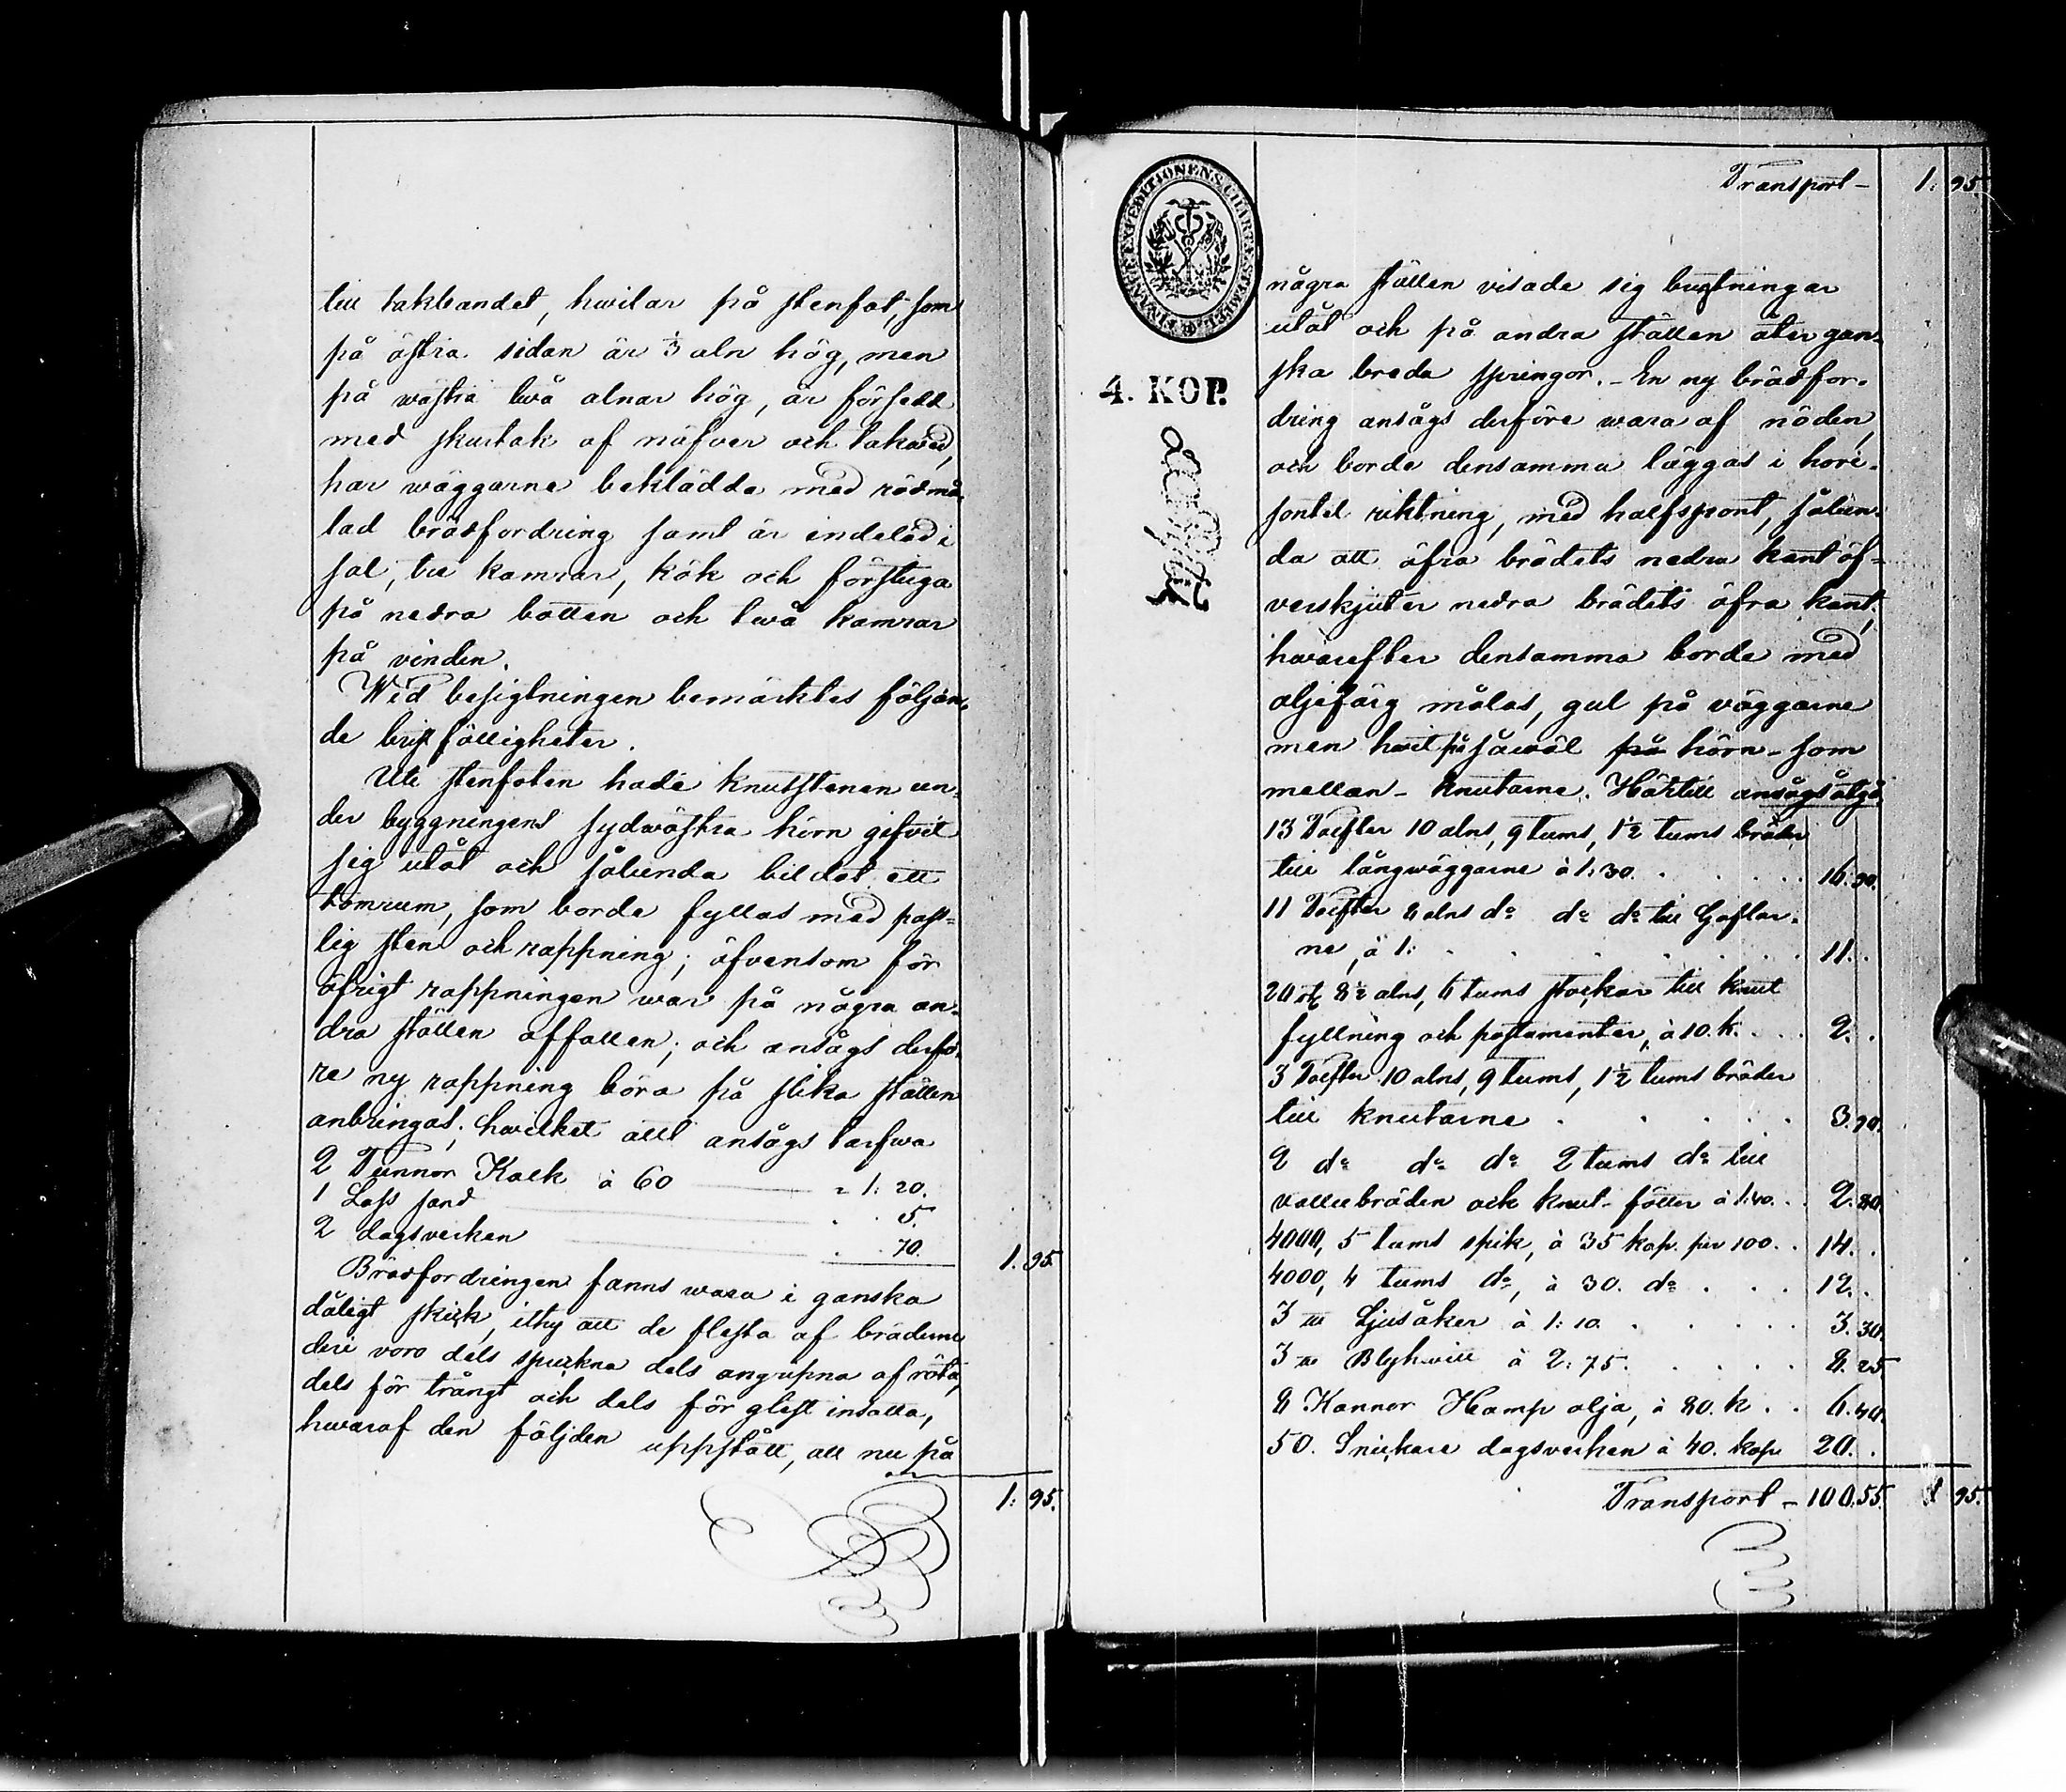 till takbandet, hwilar på stenfot, som
på östra sidan är 1/3 aln hög, men
på wästra twå alnar hög, är försedd
med skurtak af näfver och takwed,
har wäggarne beklädda med rödmå-
lad brädfordring samt är indelad i
sal, tre kamrar, kök och förstuga
på nedra botten och twå kamrar
på vinden.
Wid besigtningen bemärktes följan-
de bristfälligheter.
Uti stenfoten hade knutstenen un-
der byggningens sydwästra hörn gifvit
sig utåt och sålunda bildat ett
tomrum, som borde fyllas med pass-
lig sten och rappning; äfvensom för
öfrigt rappningen war på några an-
dra ställen affallen; och ansågs derfö-
re ny rappning böra på slika ställen
anbringas; hwilket allt ansågs tarfwa
2 Tunnor Kalk à 60 " 1: 20.
1 Lass sand " . 5.
2 dagsverken . . 70. 1. 95.
Brädfordringen fanns wara i ganska
dåligt skick, ithy att de flesta af bräderne
deri voro dels spruckna dels angripna af röta,
dels för trångt och dels för glest insatta,
hwaraf den följden uppstått, att nu på
1: 95.
FINANCE EXPEDITIONENS CHARTÆ STEMPEL
4. KOP.
Transport - 1: 95.
några ställen visade sig bugtningar
utåt och på andra ställen åter gan-
ska breda springor. - En ny brädfor-
dring ansågs derföre wara af nöden,
och borde densamma läggas i hori-
sontel riktning, med halfspont, sålun-
da att öfra brädets nedra kant öf-
verskjuter nedra brädets öfra kant,
hwarefter densamma borde med
oljefärg målas, gul på väggarne
men hwit på såwäl på hörn- som
mellan- knutarne. Härtill ansågs åtgå
13 Tolfter 10 alns, 9 tums, 1 1/2 tums bräder
till långwäggarne à 1: 30. . . . 16. 90.
11 Tolfter 8 alns do do do till Gaflar-
ne, à 1: . . . . . . 11. .
20 st 8 1/2 alns, 6 tums stockar till knut
fyllning och postamenter, à 10. k. . . . 2. .
3 Tolfter 10 alns, 9 tums, 1 1/2 tums bräder
till knutarne . . . . . 3. 90.
2 do do do 2 tums do till
vattubräden och knut- fötter à 1:40. . . 2. 80.
4000, 5 tums spik, à 35 kop. per 100. . . 14. .
4000, 4 tums do, à 30. do . . . 12. .
3 Ljusåker à 1: 10. . . . . . 3. 30.
3 Blyhwitt à 2: 75. . . . . 8. 25
8 Kannor Hamp olja, à 80. k. . . 6. 40.
50. Snickare dagsverken à 40. kop 20. .
Transport - 100. 55. 1 95.